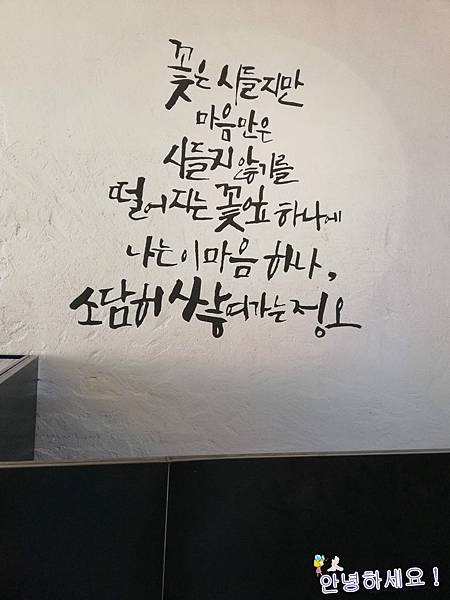 꽃은 시들지만
마음만은
시들지 않기를
떨어지는 꽃잎 하나에
나는 이 마음 하나,
소담히 싸 가는 정오
안녕하세요!